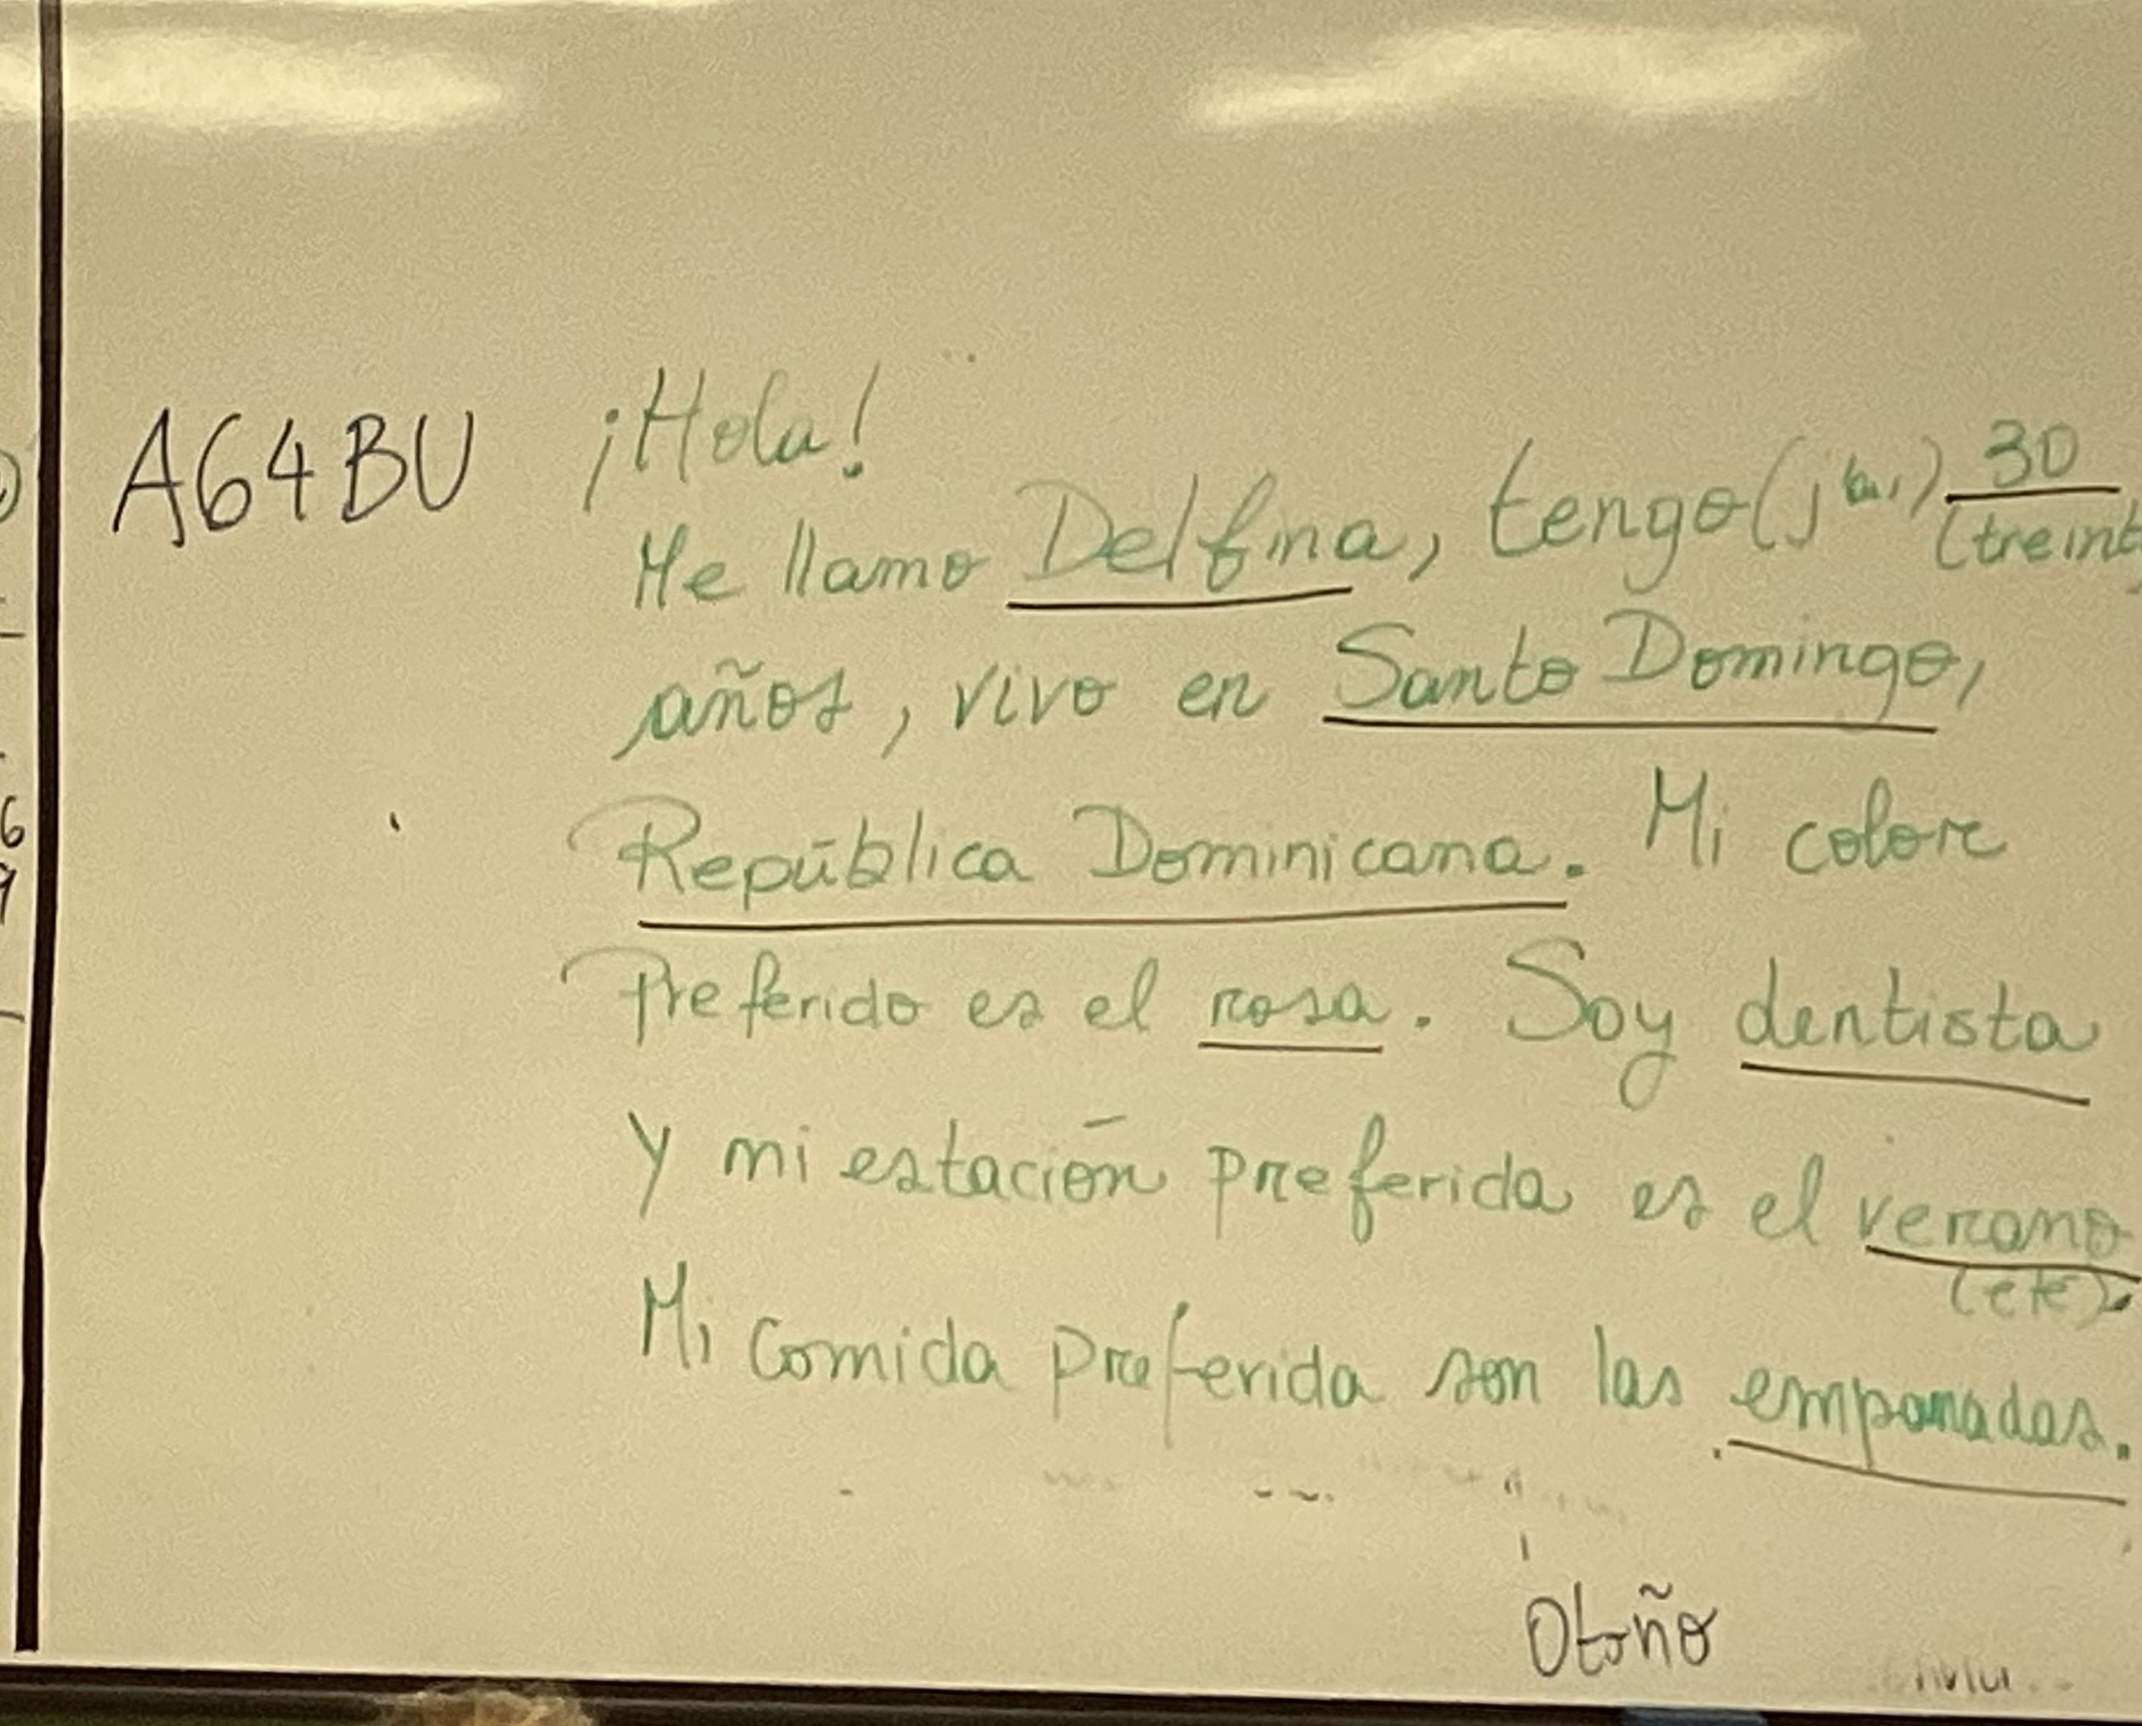 A64BU
¡Hola!
Me llamo Delfina, tengo (j'ai) 30
(treint
años, vivo en Santo Domingo,
República Dominicana. Mi color
Preferido es el rosa. Soy dentista
y mi estación preferida es el verano
(eté).
Mi comida preferida son las empanadas.
Otoño